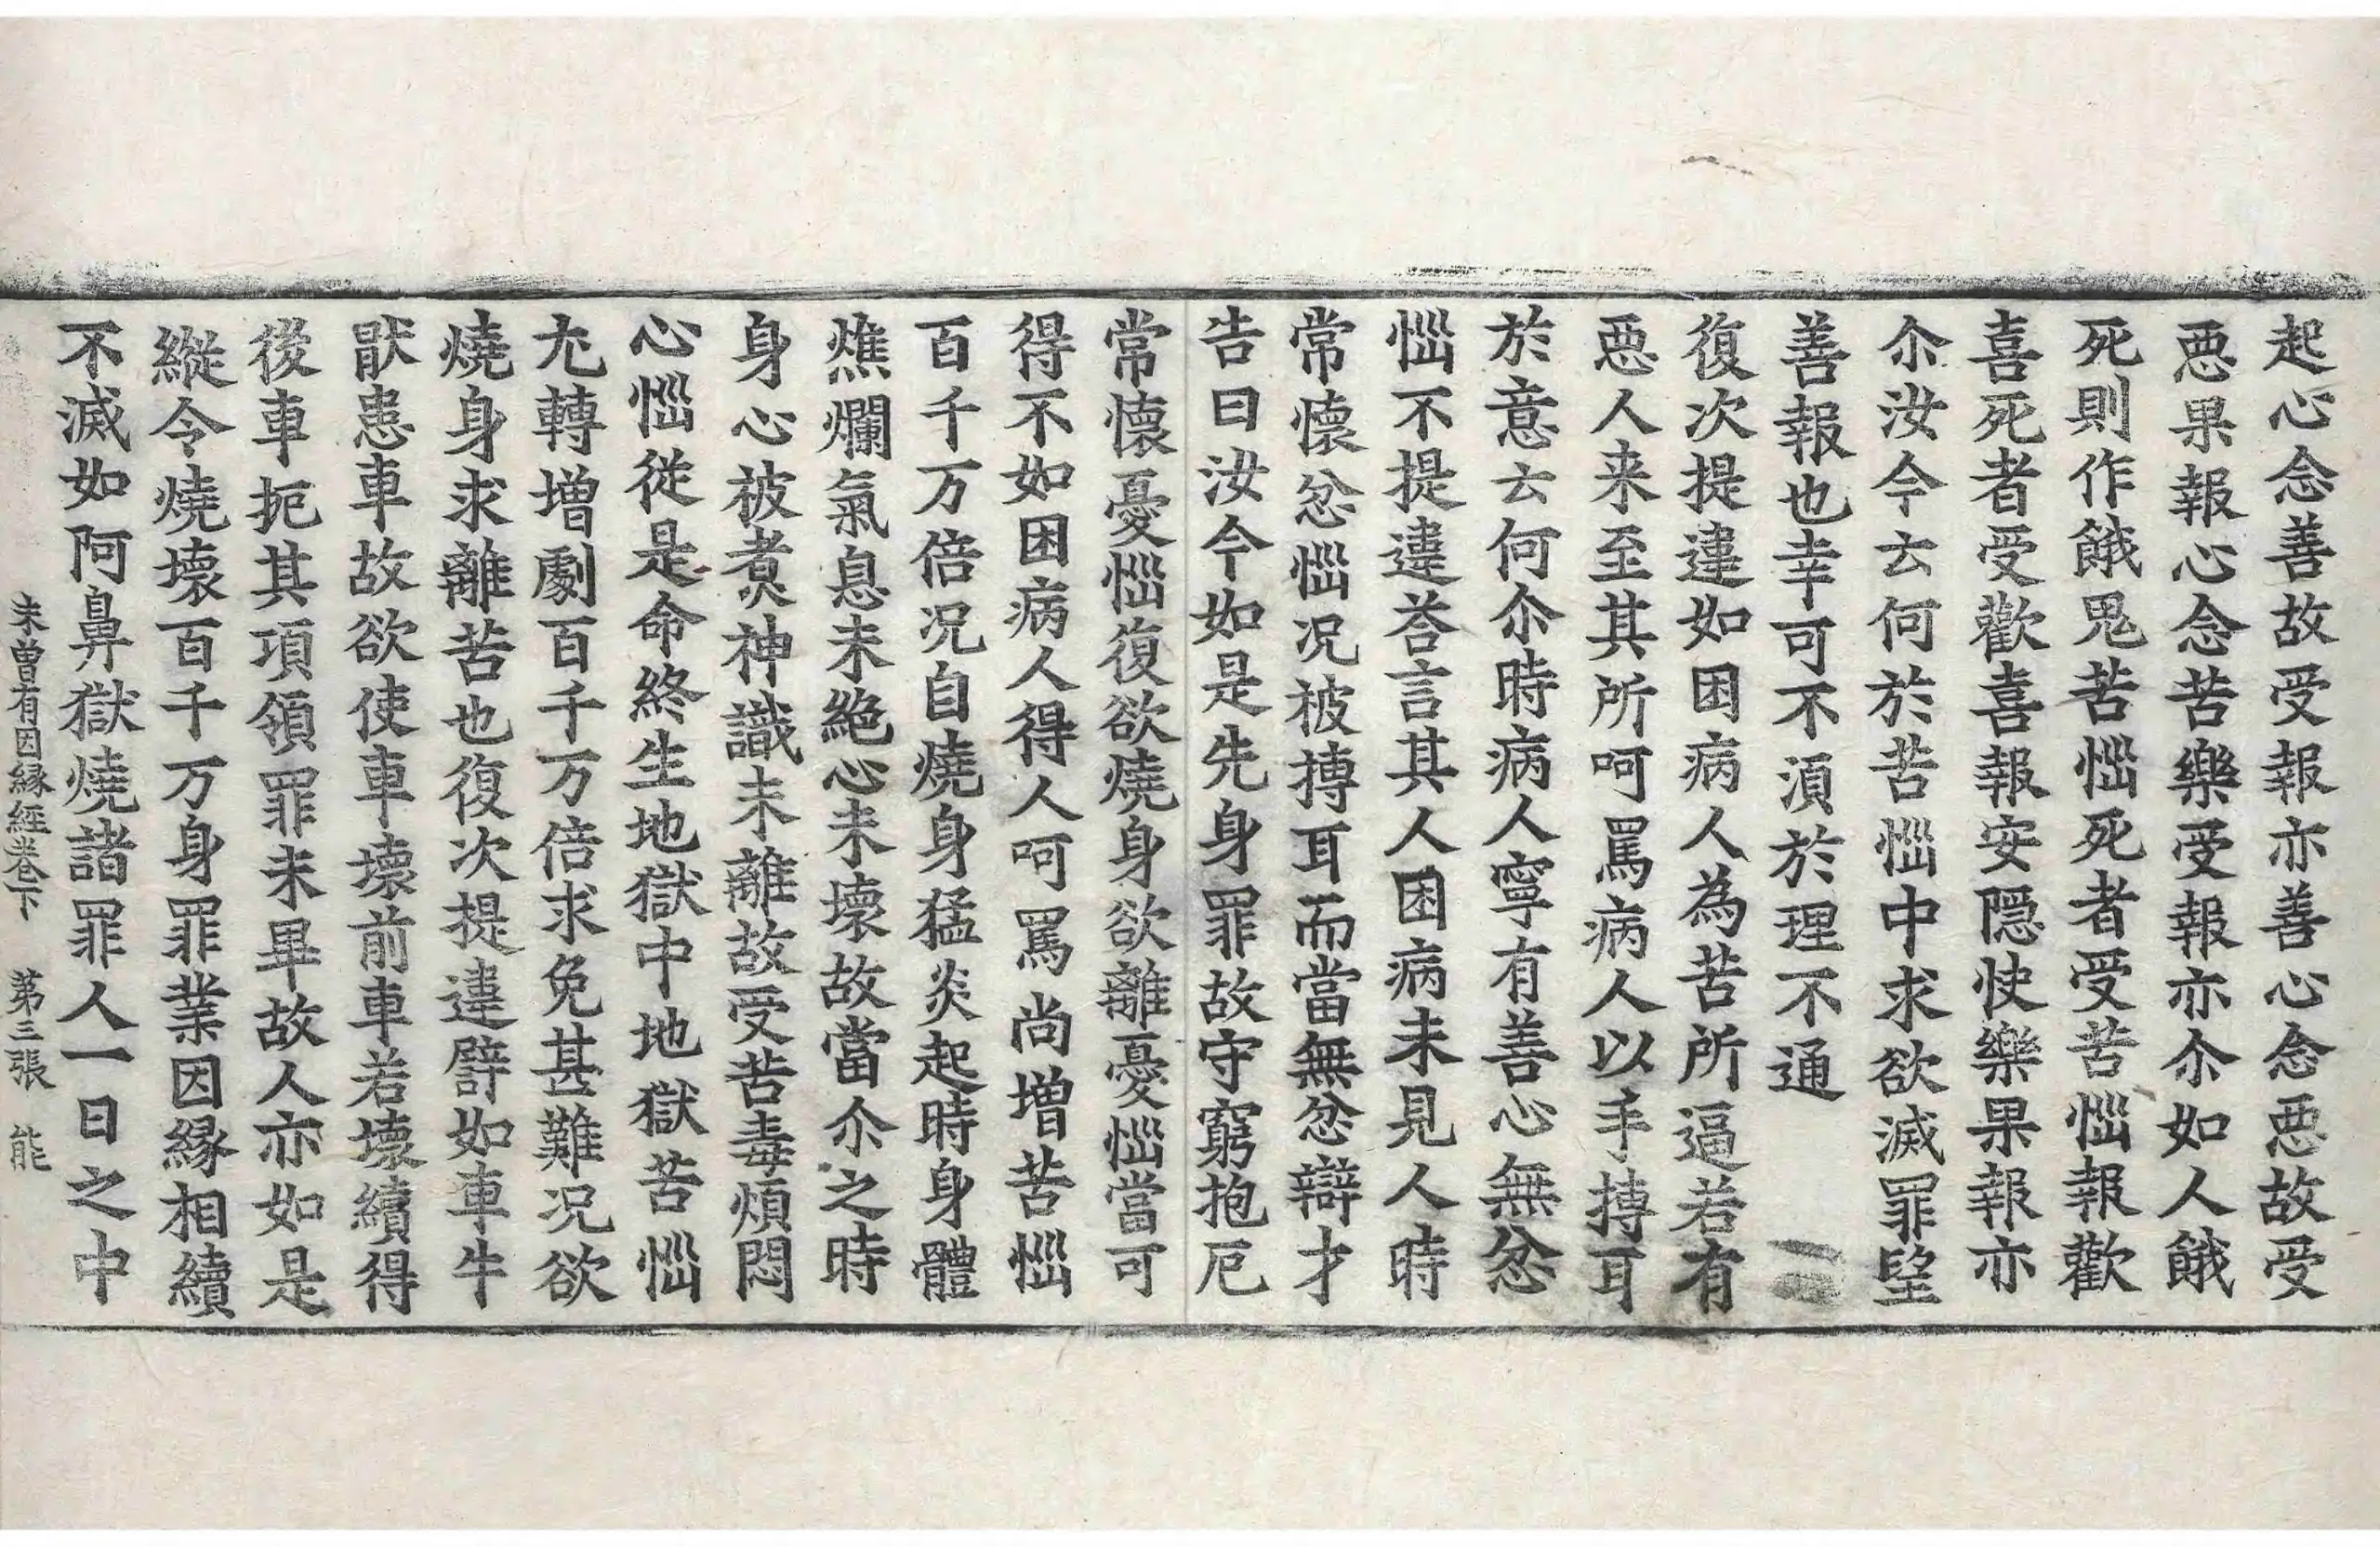 起心念善故受報亦善心念悪故受
悪果報心念苦樂受報亦尒如人餓
死則作餓鬼苦惱死者受苦惱報歡
喜死者受歡喜報安隱快樂果報亦
尒汝今云何於苦惱中求欲滅罪望
善報也幸可不湏於理不通
復次提違如困病人為苦所逼若有
悪人来至其所呵罵病人以手摶耳
於意云何尒時病人寧有善心無忿
惱不提違荅言其人困病未見人時
常懷忿惱况被摶耳而當無忿辯才
告曰汝今如是先身罪故守窮抱厄
常懷憂惱復欲燒身欲離憂惱當可
得不如困病人得人呵罵尚增苦惱
百千万倍况自燒身猛炎起時身體
燋爛氣息未絕心未壞故當尒之時
身心被煮神識未離故受苦毒煩悶
心惱從是命終生地獄中地獄苦惱
尤轉增劇百千万倍求免甚難况欲
燒身求離苦也復次提違譬如車牛
猒患車故欲使車壞前車若壞續得
後車扼其項領罪未畢故人亦如是
縱令燒壞百千万身罪業因縁相續
不滅如阿鼻獄燒諸罪人一日之中
未曽有因縁經卷下 第三張 能